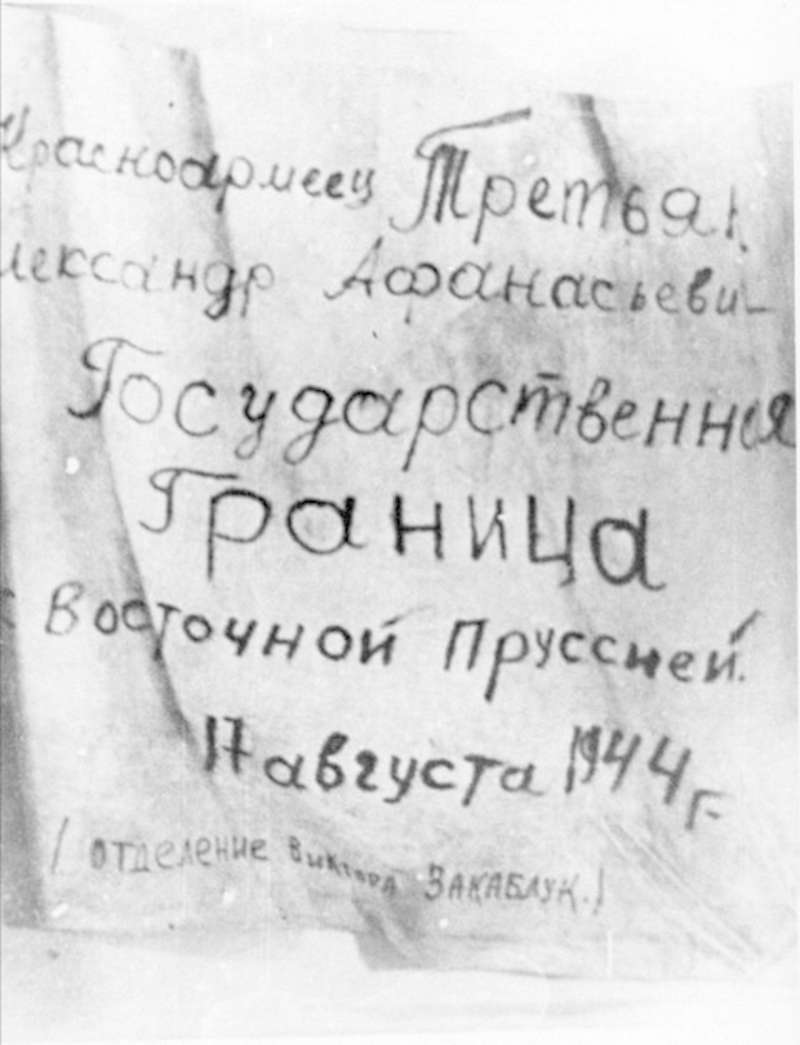 Красноармеец Третьяк
лександр Афанасьеви
Государственная
Граница
с Восточной Пруссией.
17 августа 1944 г.
(отделение Виктора ЗАКАБЛУК.)